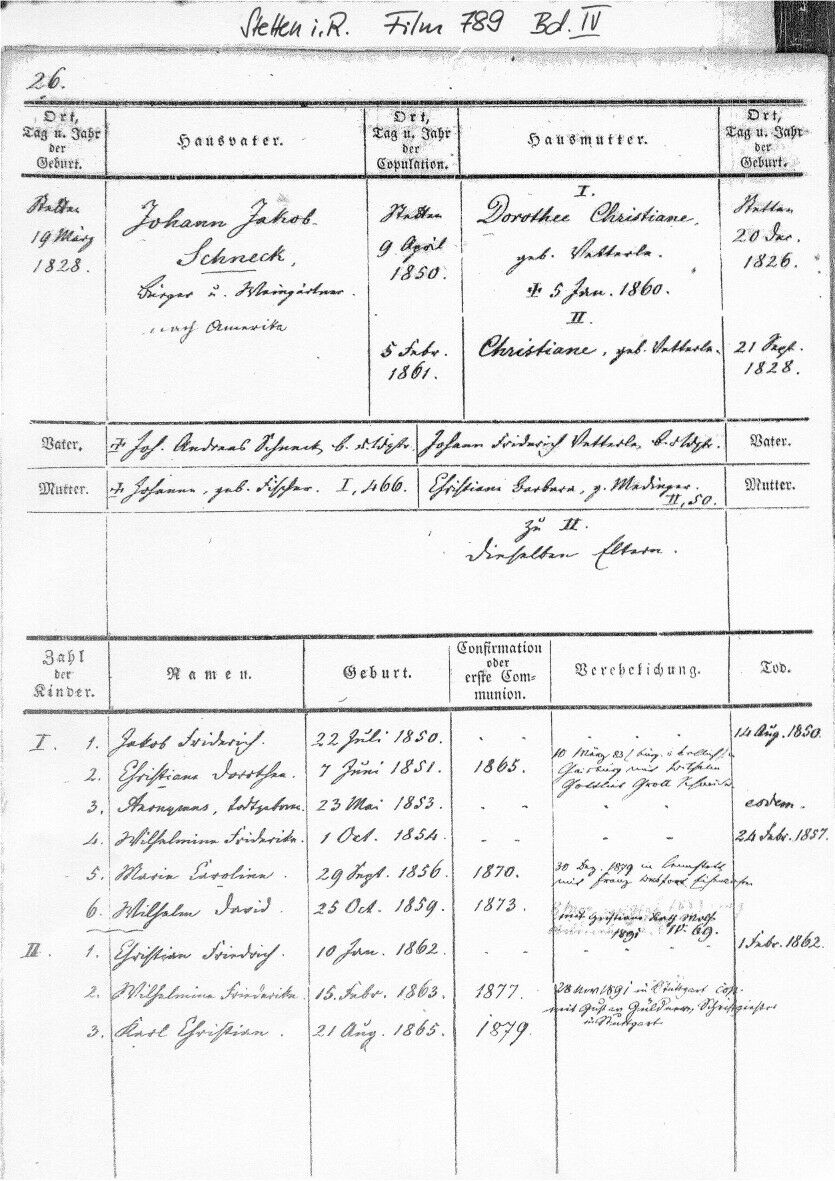 Stetten i. R. Film 789 Bd. IV
26.
Ort,
Tag u. Jahr
der
Geburt.
Hausvater.
Ort,
Tag u. Jahr
der
Copulation.
Hausmutter.
Ort,
Tag u. Jahr
der
Geburt.
Stetten
19 März
1828.
Johann Jakob
Schneck,
Bürger u. Weingärtner.
nach Amerika
Stetten
9 April
1850.
5 Febr.
1861.
I.
Dorothee Christiane,
geb. Vetterle.
✝ 5 Jan. 1860.
II
Christiane, geb. Vetterle.
Stetten
20 Dec.
1826.
21 Sept.
1828.
Vater.
✝ Joh. Andreas Schneck, b. u. Wgtr.
Johann Friderich Vetterle, b. u. Wgtr.
Vater.
Mutter.
✝ Johanna, geb. Fischer. I, 466.
Christiane Barbara, g. Medinger.
II, 50.
Mutter.
zu II.
dieselben Eltern.
Zahl
der
Kinder.
Namen.
Geburt.
Confirmation
oder
erste Com-
munion.
Verehelichung.
Tod.
I. 1. Jakob Friderich. 22 Juli 1850. - - - - 14 Aug. 1850.
2. Christiane Dorothea. 7 Juni 1851. 1865. 10 März 83
Gaisburg mit Wilhelm
Gottlieb Groll
3. Anonymus, todtgeboren. 23 Mai 1853. - - - - eodem.
4. Wilhelmine Friderike. 1 Oct. 1854. - - - - 24 Febr. 1857.
5. Marie Caroline. 29 Sept. 1856. 1870. 30 Dez. 1879 in Cannstatt
mit Franz
6. Wilhelm David. 25 Oct. 1859. 1873.
mit Christiane Kath. Wolf
1891 IV. 69.
II. 1. Christian Friedrich. 10 Jan. 1862. - - - - 1 Febr. 1862.
2. Wilhelmine Friederike. 15. Febr. 1863. 1877. 28 Nov 1891 in Stuttgart cop.
mit Gustav Güldner, Schriftgießer
in Stuttgart
3. Karl Christian. 21 Aug. 1865. 1879.